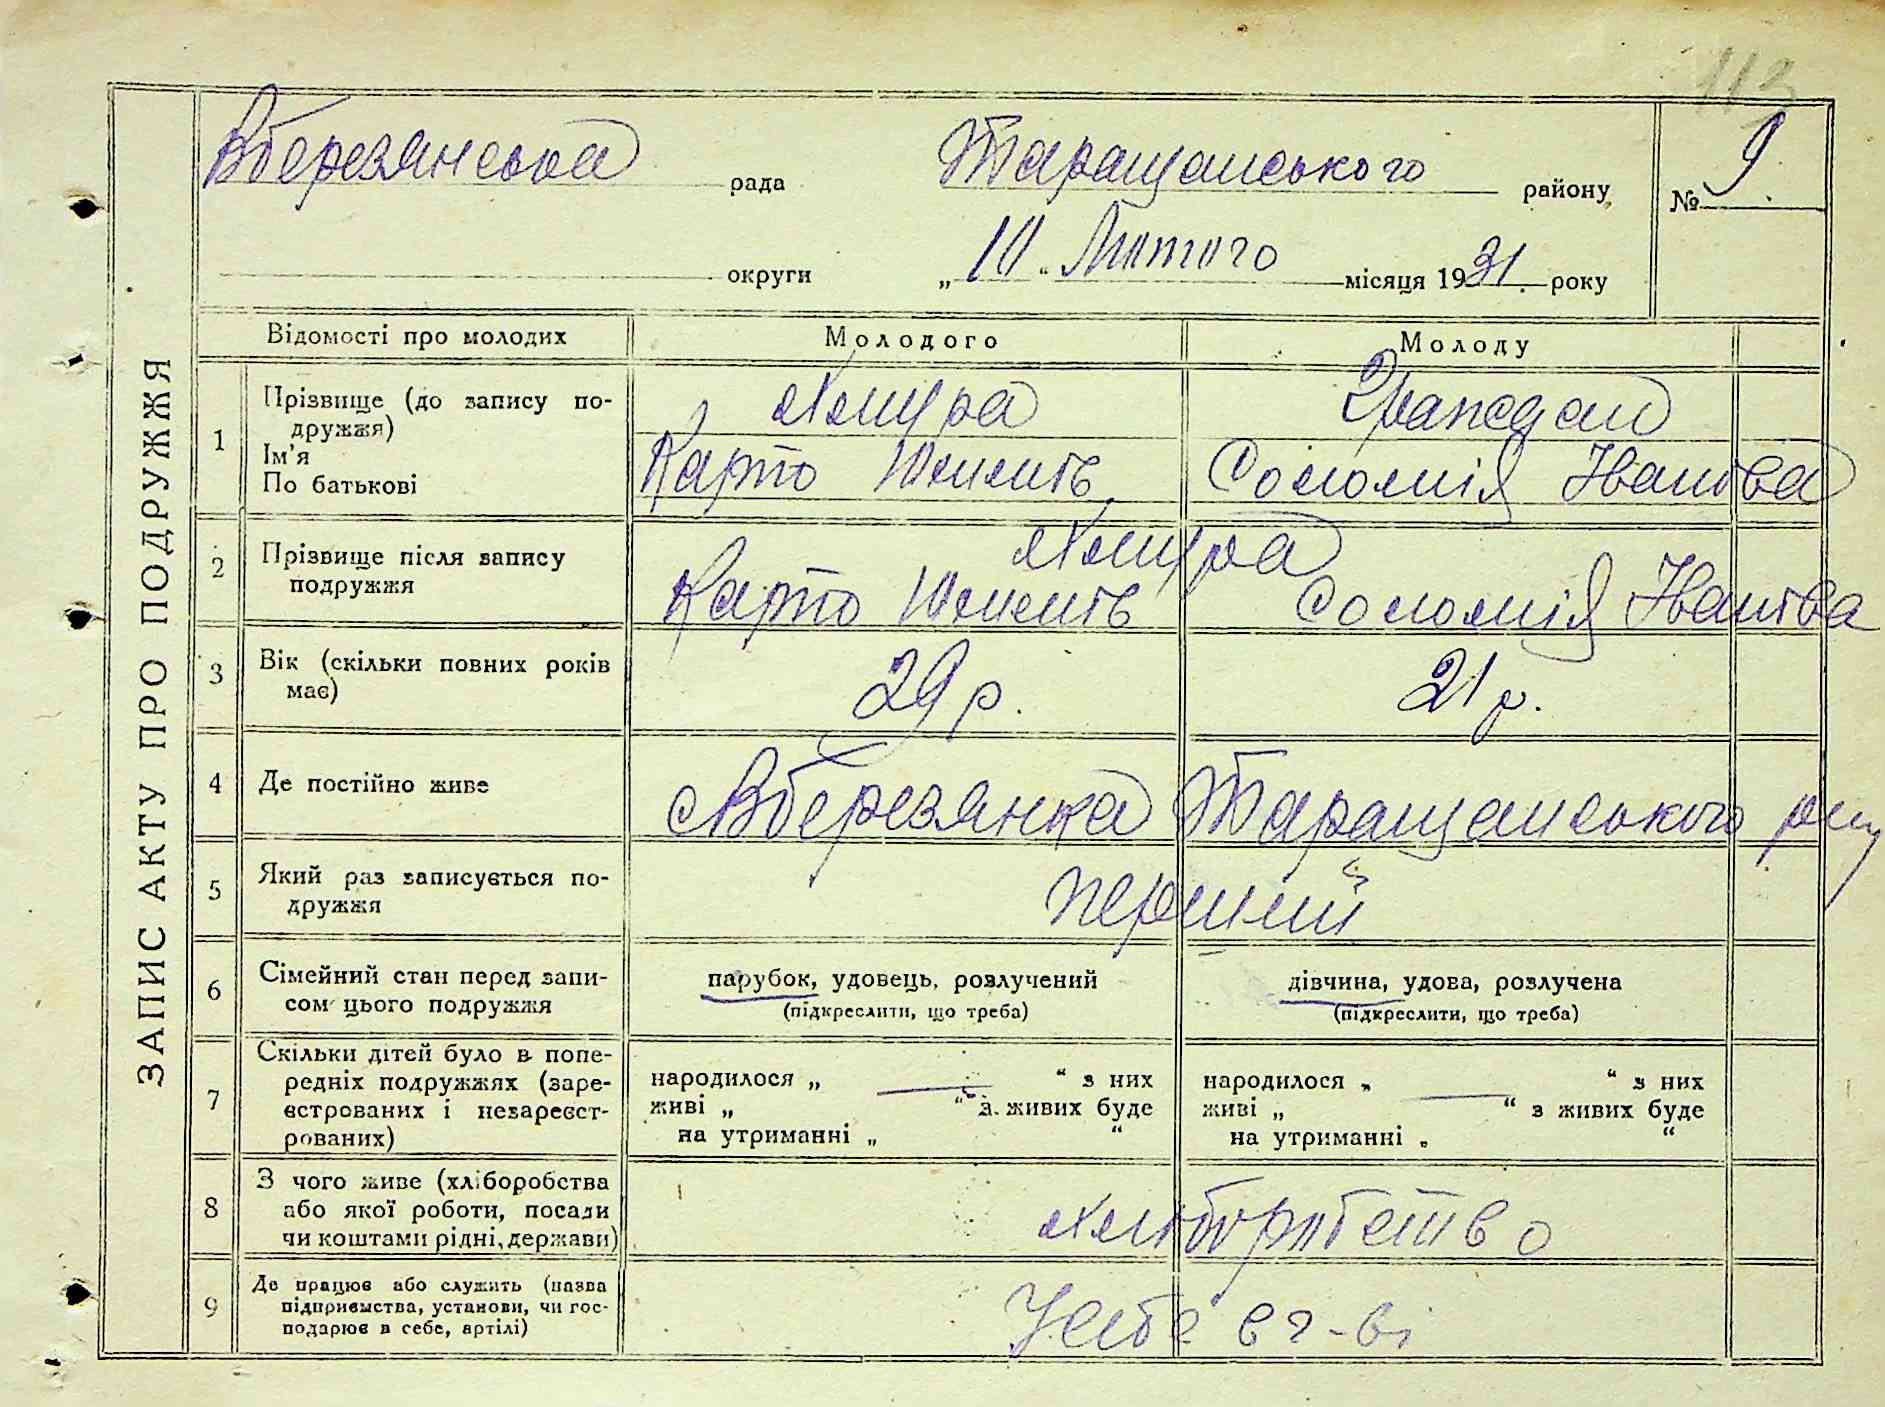 113
ЗАПИС АКТУ ПРО ПОДРУЖЖЯ
Вберезянська рада Таращанського району № 9.
округи „10“ Лютого місяця 1931. року
Відомості про молодих Молодого Молоду
1 Прізвище (до запису по-
дружжя)
Ім'я
По батькові
Хмура
Карпо
Граждан
Соломія Іванівна
2 Прізвище після запису
подружжя
Хмура
Карпо Соломія Іванівна
3 Вік (скільки повних років
має)
29 р. 21 р.
4 Де постійно живе
Вберезянка Таращанського р-ну
5 Який раз записується по-
дружжя
перший
6 Сімейний стан перед запи-
сом цього подружжя
парубок, удовець, розлучений
(підкреслити, що треба)
дівчина, удова, розлучена
(підкреслити, що треба)
7 Скільки дітей було в попе-
редніх подружжях (заре-
єстрованих і незареєст-
рованих)
народилося „ — “ з них
живі „ “ з живих буде
на утриманні „ “
народилося „ “ з них
живі „ — “ з живих буде
на утриманні „ “
8 З чого живе (хліборобства
або якої роботи, посади
чи коштами рідні, держави)
хліборобство
9 Де працює або служить (назва
підприємства, установи, чи гос-
подарює в себе, артілі)
У себе в г-ві